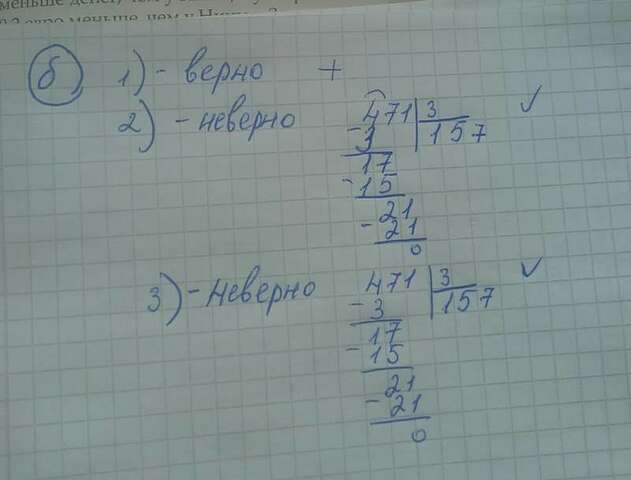 б 1) - верно +
2) - неверно 471 | 3 ✓
- 3 157
17
- 15
21
- 21
0
3) - неверно 471 | 3 ✓
- 3 157
17
- 15
21
- 21
0